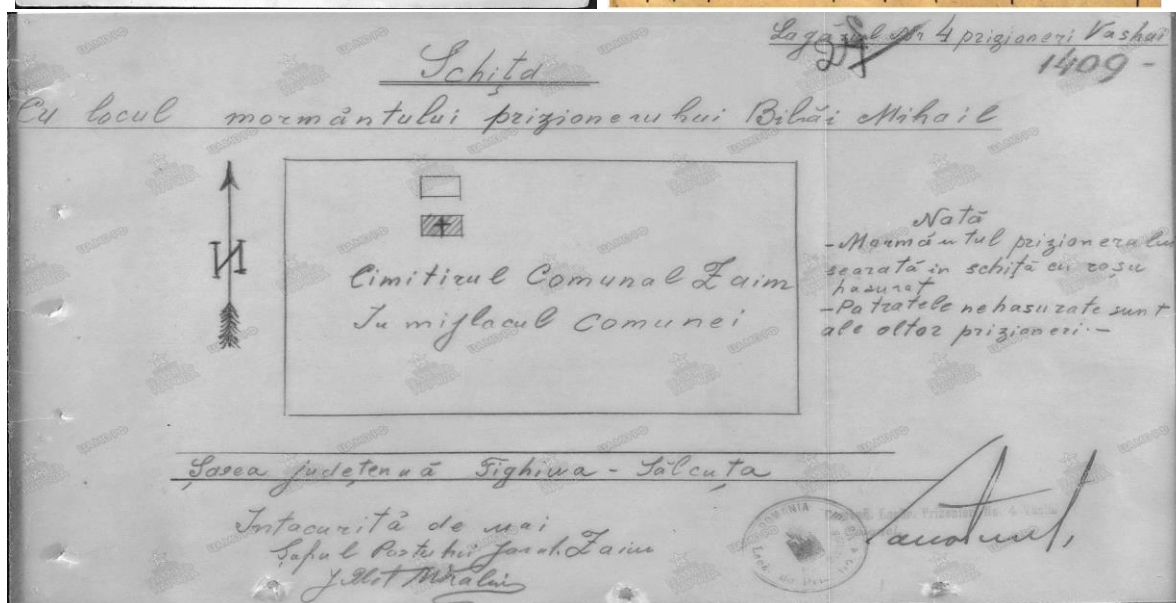 Lagărul Nr 4 prizioneri Vaslui
1409 -
Schiţă
Cu locul mormântului prizionerului Bihăi Mihail
N
Cimitirul Comunal Zaim
In mijlacul Comunei
Natā
- Mormântul prizionerului
searată in schiţă cu roşu
haşurat
- Patratele nehasurate sunt
ale altor prizioneri. -
Şosea judeţenă Tighina - Sălcuţa
Intacurită de noi
Şaful Postului Jand. Zaim
ROMANIA